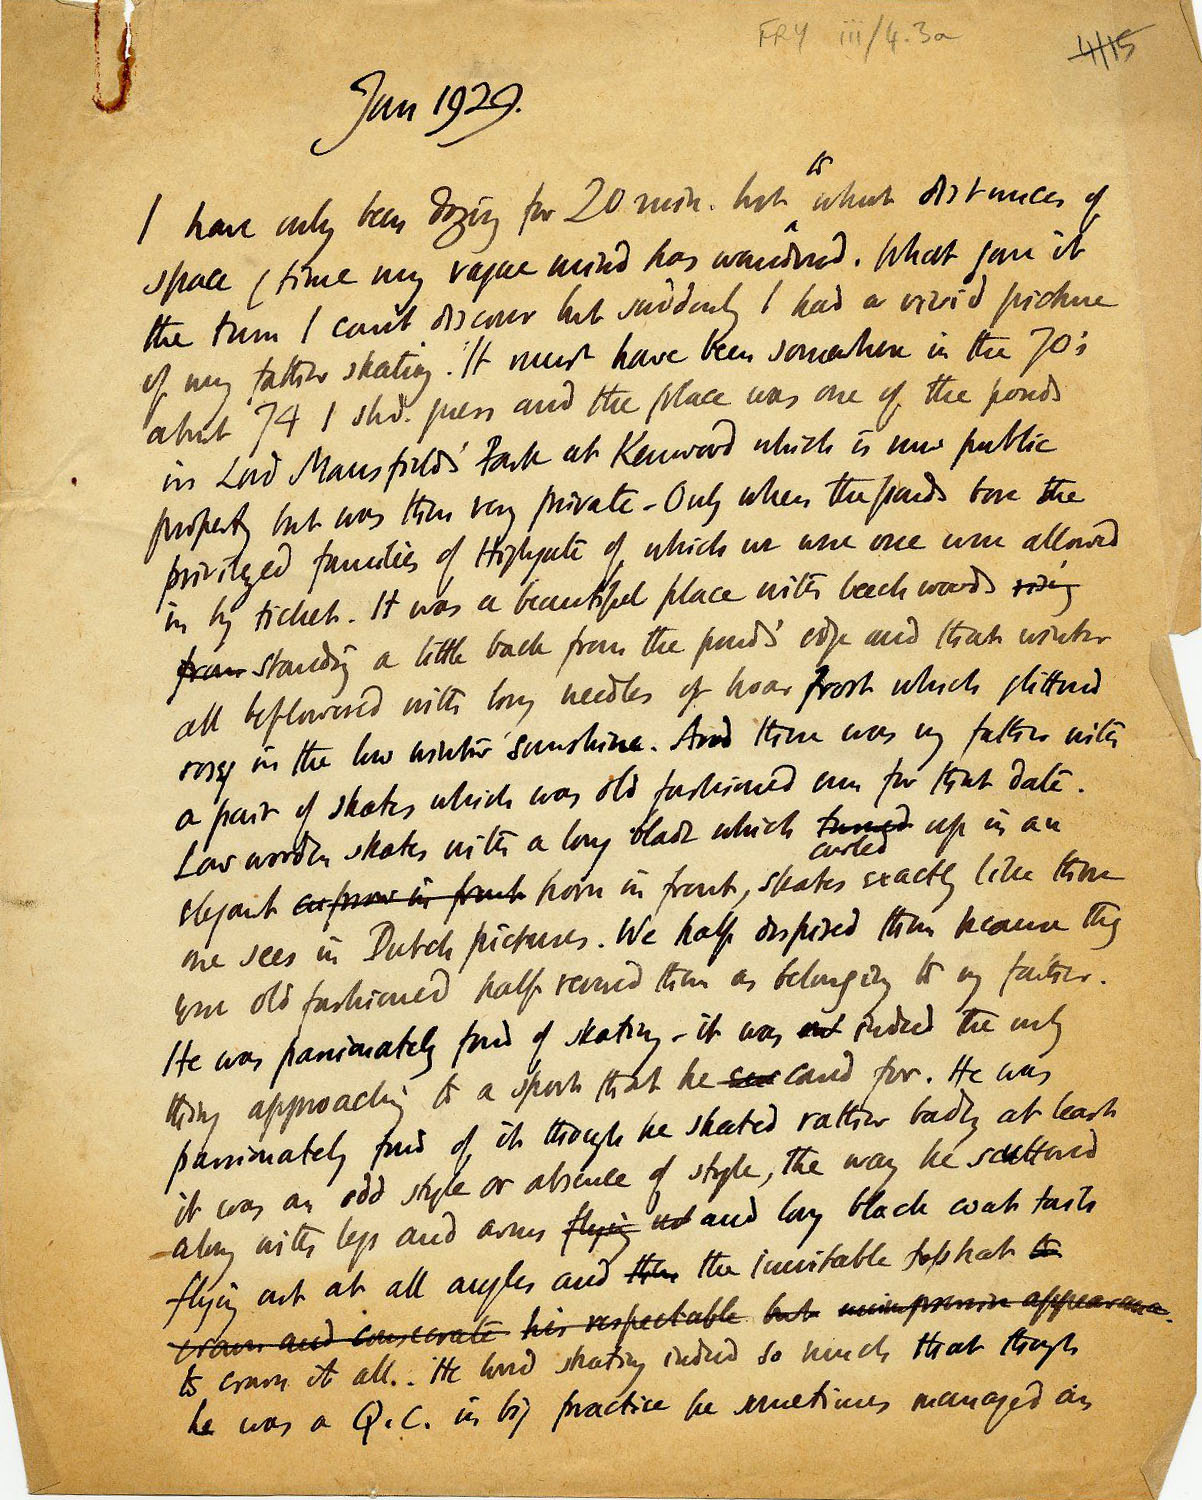 FRY iii/4.3a
4/15
Jan 1929.
to
I have only been dozing for 20 min. but ^ what distances of
space & time my vague mind has wandered. What gave it
the turn I can't discover but suddenly I had a vivid picture
of my father skating. It must have been somewhere in the 70's
about 74 I shd. guess and the place was one of the ponds
in Lord Mansfield's Park at Kenwood which is now public
property but was then very private - Only when the ponds bore the
privileged families of Highgate of which we were one were allowed
in by ticket. It was a beautiful place with beech woods rising
from standing a little back from the pond's edge and that winter
all beflowered with long needles of hoar frost which glittered
rosy in the low winter sunshine. And there was my father with
a pair of skates which was old fashioned even for that date.
Low wooden skates with a long blade which turned up in an
curled
elegant in front horn in front, skates exactly like those
one sees in Dutch pictures. We half despised them because they
were old fashioned half revered them as belonging to my father.
He was passionately fond of skating - it was indeed the only
thing approaching to a sport that he cared for. He was
passionately fond of it though he skated rather badly at least
it was an odd style or absence of style, the way he scuttered
along with legs and arms flying out and long black coat tails
flying out at all angles and then the inevitable tophat to
crown and consecrate his respectable but unimpressive appearance.
to crown it all.. He loved skating indeed so much that though
he was a Q.C. in big practice he sometimes managed an